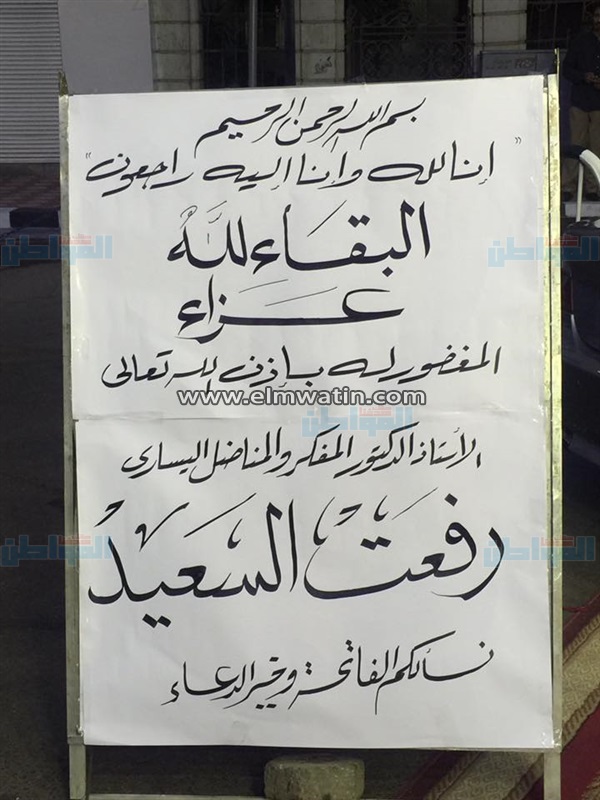 بسم الله الرحمن الرحيم
"إنا لله وإنا إليه راجعون"
البقاء لله
عزاء
المغفور له بإذن الله تعالى
www.elmwatin.com
الأستاذ الدكتور المفكر والمناضل اليسارى
رفعت السعيد
نسألكم الفاتحة وخير الدعاء
المواطن